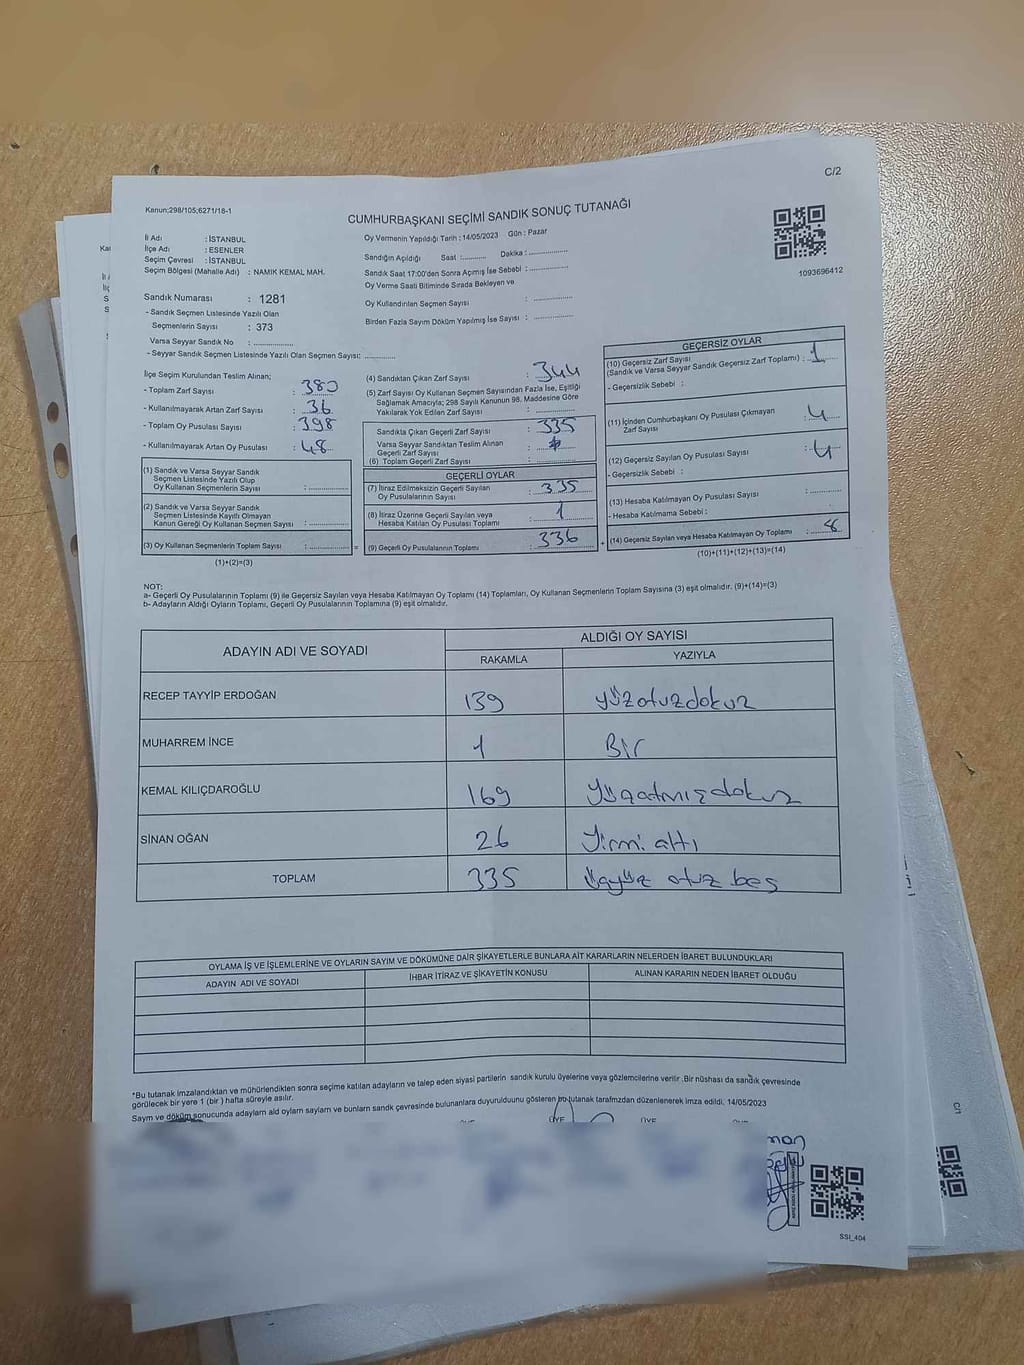 C/2
Kanun;298/105;6271/18-1
CUMHURBAŞKANI SEÇİMİ SANDIK SONUÇ TUTANAĞI
1093696412
İl Adı : İSTANBUL
İlçe Adı : ESENLER
Seçim Çevresi : İSTANBUL
Seçim Bölgesi (Mahalle Adı) : NAMIK KEMAL MAH.
Oy Vermenin Yapıldığı Tarih : 14/05/2023 Gün : Pazar
Sandığın Açıldığı Saat :........... Dakika :................
Sandık Saat 17:00'den Sonra Açımış İse Sebebi :................
Oy Verme Saati Bitiminde Sırada Bekleyen ve
Oy Kullandırılan Seçmen Sayısı : ................
Birden Fazla Sayım Döküm Yapılmış İse Sayısı : ................
Sandık Numarası : 1281
- Sandık Seçmen Listesinde Yazılı Olan
Seçmenlerin Sayısı : 373
Varsa Seyyar Sandık No : ................
- Seyyar Sandık Seçmen Listesinde Yazılı Olan Seçmen Sayısı: .............
İlçe Seçim Kurulundan Teslim Alınan;
- Toplam Zarf Sayısı : 380
- Kullanılmayarak Artan Zarf Sayısı : 36
- Toplam Oy Pusulası Sayısı : 398
- Kullanılmayarak Artan Oy Pusulası : 48
(1) Sandık ve Varsa Seyyar Sandık
Seçmen Listesinde Yazılı Olup
Oy Kullanan Seçmenlerin Sayısı : ................
(2) Sandık ve Varsa Seyyar Sandık
Seçmen Listesinde Kayıtlı Olmayan
Kanun Gereği Oy Kullanan Seçmen Sayısı : ................
(3) Oy Kullanan Seçmenlerin Toplam Sayısı : ................ =
(1)+(2)=(3)
(4) Sandıktan Çıkan Zarf Sayısı : 344
(5) Zarf Sayısı Oy Kullanan Seçmen Sayısından Fazla İse, Eşitliği
Sağlamak Amacıyla; 298 Sayılı Kanunun 98. Maddesine Göre
Yakılarak Yok Edilen Zarf Sayısı : ................
Sandıkta Çıkan Geçerli Zarf Sayısı : 335
Varsa Seyyar Sandıktan Teslim Alınan
Geçerli Zarf Sayısı :
(6) Toplam Geçerli Zarf Sayısı : ................
GEÇERLİ OYLAR
(7) İtiraz Edilmeksizin Geçerli Sayılan
Oy Pusulalarının Sayısı : 335
(8) İtiraz Üzerine Geçerli Sayılan veya
Hesaba Katılan Oy Pusulası Toplamı : 1
(9) Geçerli Oy Pusulalarının Toplamı : 336 +
GEÇERSİZ OYLAR
(10) Geçersiz Zarf Sayısı
(Sandık ve Varsa Seyyar Sandık Geçersiz Zarf Toplamı) : 1
- Geçersizlik Sebebi :
(11) İçinden Cumhurbaşkanı Oy Pusulası Çıkmayan
Zarf Sayısı : 4
(12) Geçersiz Sayılan Oy Pusulası Sayısı : 4
- Geçersizlik Sebebi :
(13) Hesaba Katılmayan Oy Pusulası Sayısı : ................
- Hesaba Katılmama Sebebi :
(14) Geçersiz Sayılan veya Hesaba Katılmayan Oy Toplamı : 8
(10)+(11)+(12)+(13)=(14)
NOT:
a- Geçerli Oy Pusulalarının Toplamı (9) ile Geçersiz Sayılan veya Hesaba Katılmayan Oy Toplamı (14) Toplamları, Oy Kullanan Seçmenlerin Toplam Sayısına (3) eşit olmalıdır. (9)+(14)=(3)
b- Adayların Aldığı Oyların Toplamı, Geçerli Oy Pusulalarının Toplamına (9) eşit olmalıdır.
ADAYIN ADI VE SOYADI ALDIĞI OY SAYISI
RAKAMLA YAZIYLA
RECEP TAYYİP ERDOĞAN 139 yüzotuzdokuz
MUHARREM İNCE 1 Bir
KEMAL KILIÇDAROĞLU 169 Yüzatmışdokuz
SİNAN OĞAN 26 Yirmi altı
TOPLAM 335 üçyüz otuz beş
OYLAMA İŞ VE İŞLEMLERİNE VE OYLARIN SAYIM VE DÖKÜMÜNE DAİR ŞİKAYETLERLE BUNLARA AİT KARARLARIN NELERDEN İBARET BULUNDUKLARI
ADAYIN ADI VE SOYADI İHBAR İTİRAZ VE ŞİKAYETİN KONUSU ALINAN KARARIN NEDEN İBARET OLDUĞU
*Bu tutanak imzalandıktan ve mühürlendikten sonra seçime katılan adayların ve talep eden siyasi partilerin sandık kurulu üyelerine veya gözlemcilerine verilir .Bir nüshası da sandık çevresinde
görülecek bir yere 1 (bir ) hafta süreyle asılır.
Sayım ve döküm sonucunda adayların ald oyların sayların ve bunların sandık çevresinde bulunanlara duyurulduunu gösteren bu tutanak tarafmzdan düzenlenerek imza edildi. 14/05/2023
ÜYE ÜYE
SSI_404
C/1